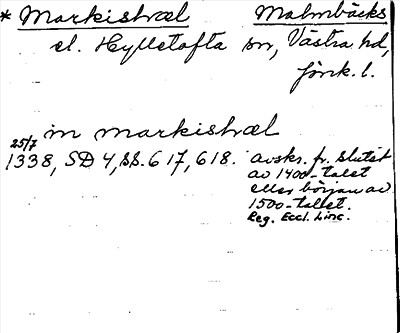 * Markishræl Malmbäcks
el. Hylletofta sn, Västra hd,
Jönk. l.
in markishræl
25/7
1338, SD 4, ss. 617, 618. avskr. fr. slutet
av 1400-talet
eller början av
1500-tallet.
Reg. Eccl. Linc.